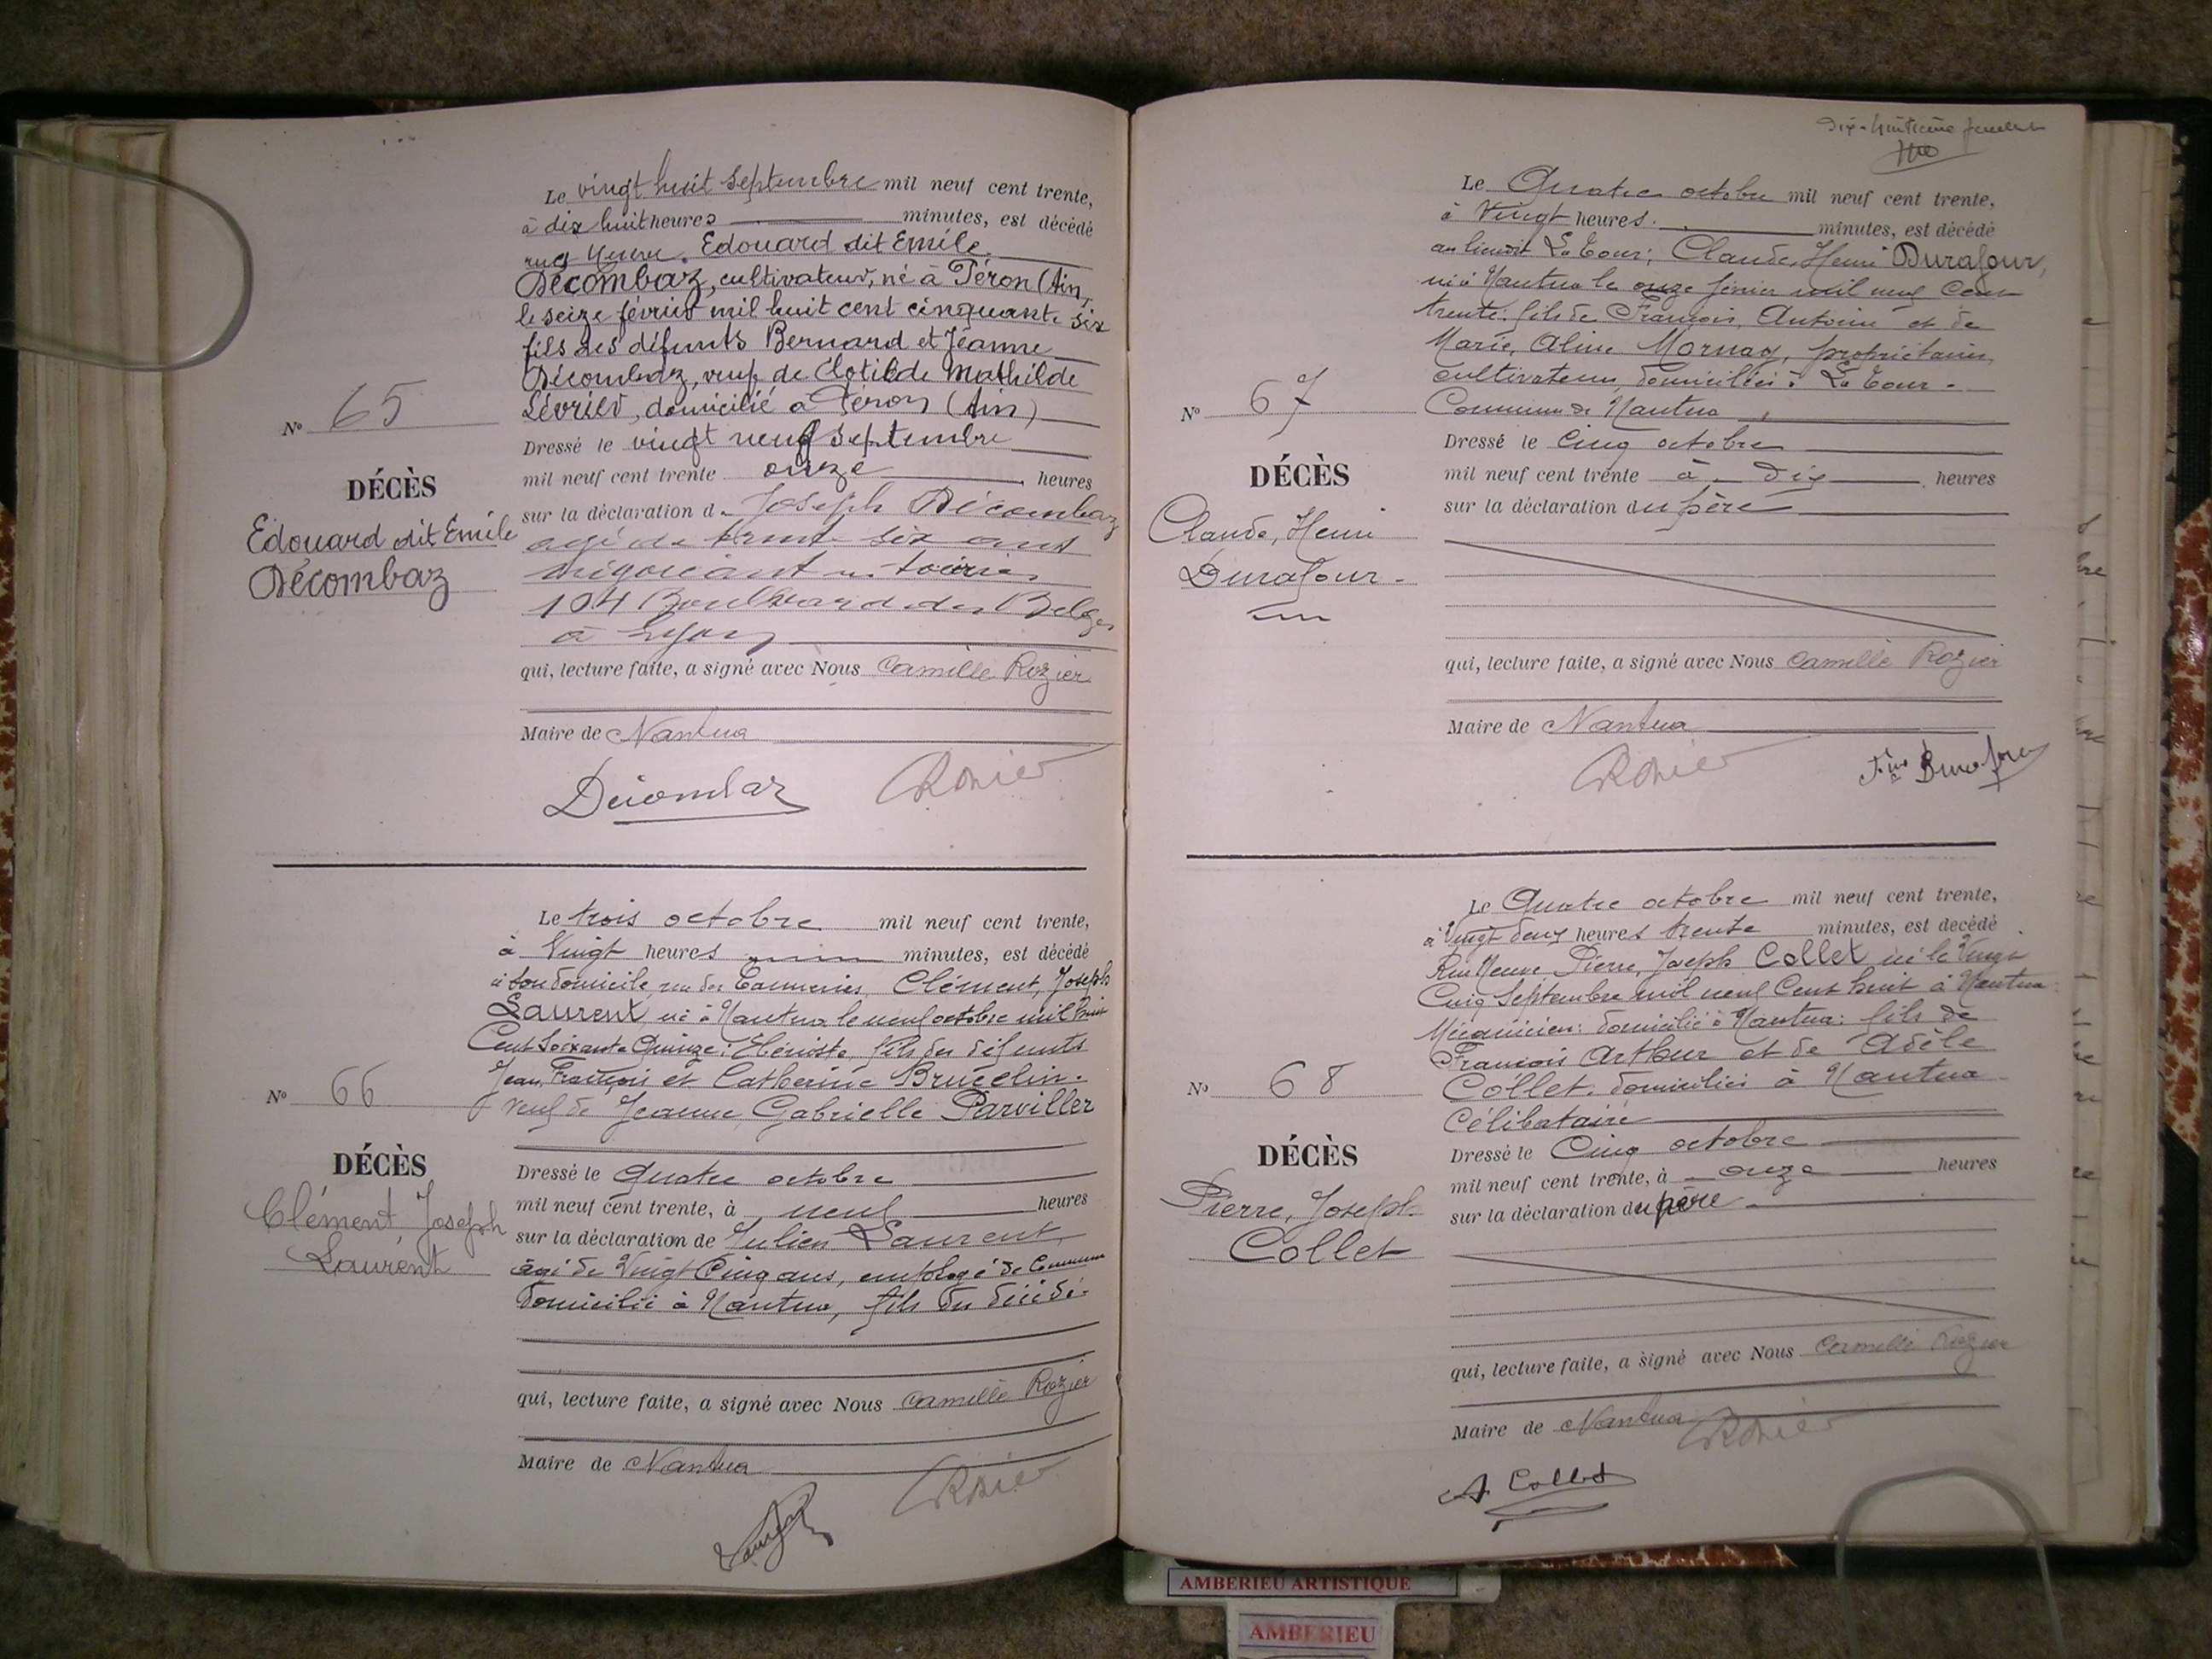 Le vingt huit Septembre mil neuf cent trente,
à dix huit heures minutes, est décédé
rue Neuve. Edouard dit Emile
Décombaz, cultivateur, né à Péron (Ain,
le seize février mil huit cent cinquante six
fils des défunts Bernard et Jeanne
Décombaz, veuf de Clotilde Mathilde
Lévrier, domicilié à Péron (Ain)
Nº 65
DÉCÈS
Edouard dit Emile
Décombaz
Dressé le vingt neuf septembre
mil neuf cent trente onze heures
sur la déclaration de Joseph Décombaz
agé de trente six ans
négociant en
104 Boulevard des Belges
à Lyon
qui, lecture faite, a signé avec Nous Camille Rozier
Maire de Nantua
Décombaz Rozier
Le trois octobre mil neuf cent trente,
à Vingt heures minutes, est décédé
à son domicile, rue des Tanneries, Clément, Joseph
Laurent, né à Nantua le neuf octobre mil huit
Cent Soixante Quinze; Ebéniste, fils des défunts
Jean, François et Catherine Brucelin.
veuf de Jeanne, Gabrielle Parviller
Nº 66
DÉCÈS
Clément, Joseph
Laurent
Dressé le Quatre octobre
mil neuf cent trente, à neuf heures
sur la déclaration de Julien Laurent,
âgé de Vingt Cinq ans, employé de Commerce
domicilié à Nantua, fils du décédé.
qui, lecture faite, a signé avec Nous Camille Rozier
Maire de Nantua
Laurent Rozier
Dix-huitième feuillet
Le Quatre octobre mil neuf cent trente,
à Vingt heures. minutes, est décédé
au lieudit La Tour; Claude, Henri Durafour,
né à Nantua le onze février mil neuf cent
trente. fils de François, Antoine et de
Marie, Aline Mornay, propriétaires
cultivateurs, domiciliés à La Tour.
Commune de Nantua
Nº 67
DÉCÈS
Claude, Henri
Durafour.
Dressé le Cinq octobre
mil neuf cent trente à Dix heures
sur la déclaration du père
qui, lecture faite, a signé avec Nous Camille Rozier
Maire de Nantua
Rozier Durafour
Le Quatre octobre mil neuf cent trente,
à Vingt deux heures trente minutes, est décédé
Rue Neuve, Pierre, Joseph Collet, né le Vingt
Cinq Septembre mil neuf Cent huit à Nantua
Mécanicien: domicilié à Nantua: fils de
François Arthur et de Adèle
Collet. domiciliés à Nantua
Célibataire
Nº 68
DÉCÈS
Pierre, Joseph
Collet
Dressé le Cinq octobre
mil neuf cent trente, à onze heures
sur la déclaration du père
qui, lecture faite, a signé avec Nous Camille Rozier
Maire de Nantua
Rozier
A. Collet
AMBERIEU ARTISTIQUE
AMBERIEU